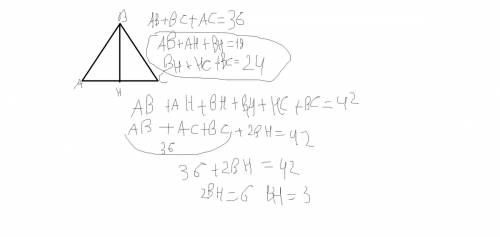 B
AB+BC+AC=36
AB+AH+BH=18
BH+HC+BC=24
A
H
C
AB+AH+BH+BH+HC+BC=42
AB+AC+BC+2BH=42
36
36+2BH=42
2BH=6 BH=3